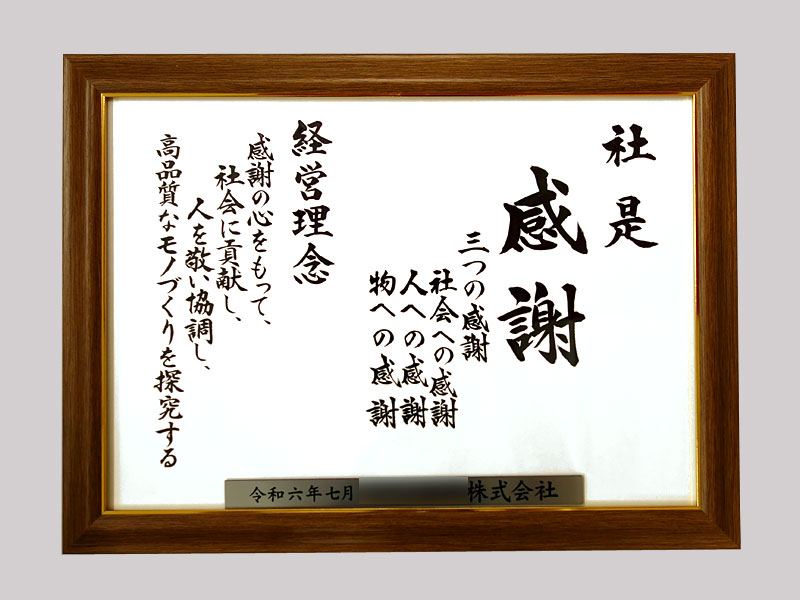 社是
感謝
三つの感謝
社会への感謝
人への感謝
物への感謝
経営理念
感謝の心をもって、
社会に貢献し、
人を敬い協調し、
高品質なモノづくりを探究する
令和六年七月 株式会社